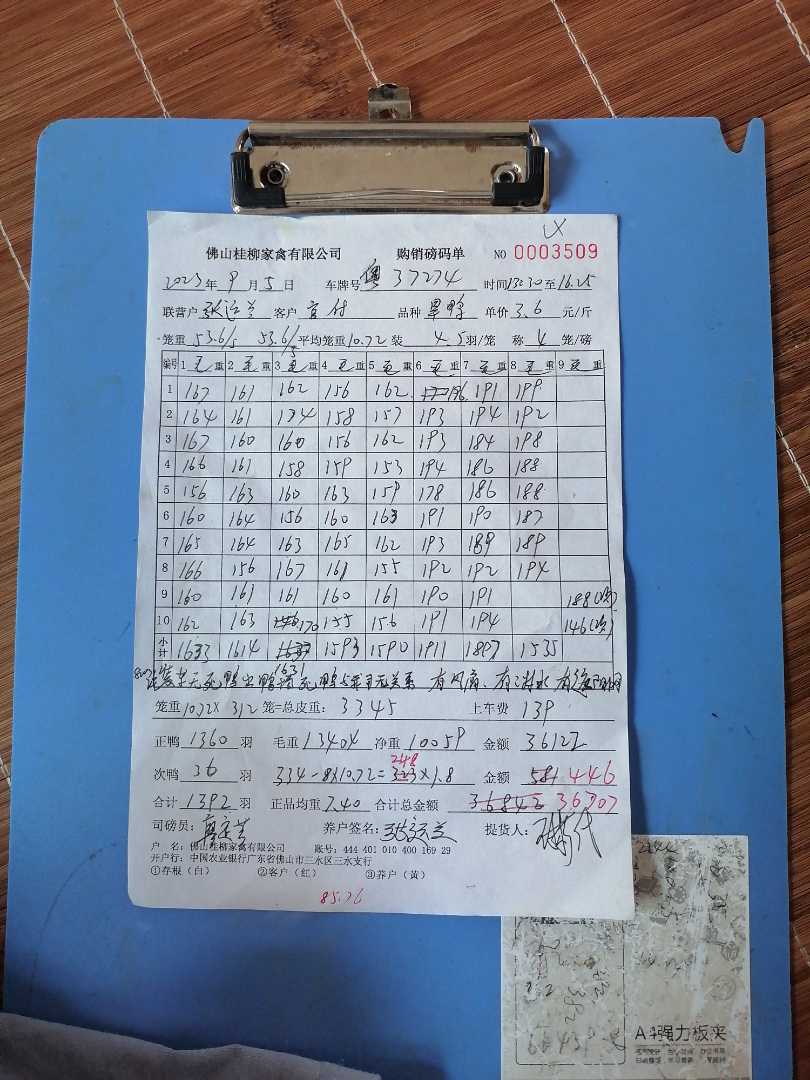 佛山桂柳家禽有限公司 购销磅码单 NO 0003509
2023年 9月 5日 车牌号 粤 37274 时间13:30至16:25
联营户 客户 品种 单价 3.6 元/斤
笼重 53.6/5 53.6/5 平均笼重10.72 装 4.5羽/笼 称 4 笼/磅
编号 1毛重 2毛重 3毛重 4毛重 5毛重 6毛重 7毛重 8毛重 9毛重
1 167 161 162 156 162 196 191 199
2 164 161 174 158 157 193 194 192
3 167 160 160 156 162 193 184 198
4 166 161 158 159 153 194 186 188
5 156 163 160 163 159 178 186 188
6 160 164 156 160 163 191 190 187
7 165 164 163 165 162 193 189 189
8 166 156 167 161 155 192 192 194
9 160 161 161 160 161 190 191 188(次)
10 162 163 170 155 156 191 194 146(次)
小计 1633 1614 1637 1593 1590 1911 1897 1535
1631
笼重10.72× 312 笼=总皮重: 3345 上车费 139
正鸭 1360 羽 毛重 13404 净重 10059 金额 36122
248
次鸭 36 羽 334-8×10.72=323×1.8 金额 581 446
合计 1392 羽 正品均重 7.40 合计总金额 36842 36707
司磅员: 养户签名: 提货人:
户 名: 佛山桂柳家禽有限公司 账号: 444 401 010 400 169 29
开户行: 中国农业银行广东省佛山市三水区三水支行
①存根(白) ②客户(红) ③养户(黄)
85.76
A4强力板夹